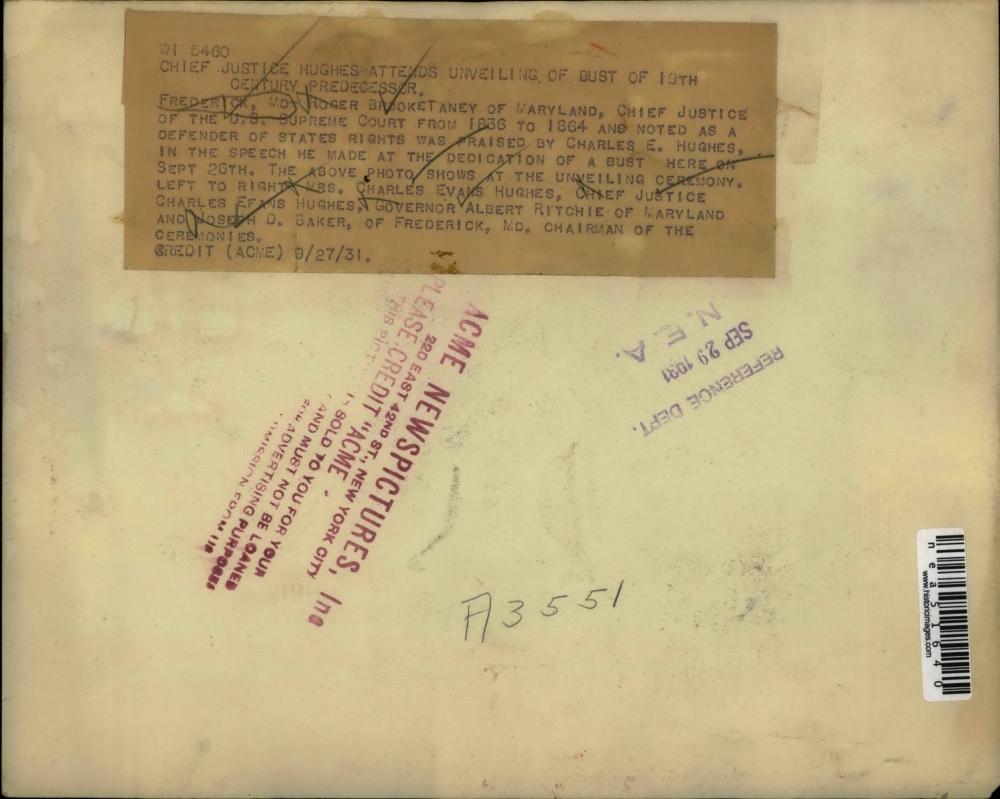 WI 5460
CHIEF JUSTICE HUGHES ATTENDS UNVEILING OF BUST OF 19TH
CENTURY PREDECESSOR.
FREDERICK, MD. ROGER BROOKE TANEY OF MARYLAND, CHIEF JUSTICE
OF THE U.S. SUPREME COURT FROM 1836 TO 1864 AND NOTED AS A
DEFENDER OF STATES RIGHTS WAS PRAISED BY CHARLES E. HUGHES,
IN THE SPEECH HE MADE AT THE DEDICATION OF A BUST HERE ON
SEPT 26TH. THE ABOVE PHOTO SHOWS AT THE UNVEILING CEREMONY.
LEFT TO RIGHT MRS. CHARLES EVANS HUGHES, CHIEF JUSTICE
CHARLES EFANS HUGHES, GOVERNOR ALBERT RITCHIE OF MARYLAND
AND JOSEPH D. BAKER, OF FREDERICK, MD. CHAIRMAN OF THE
CEREMONIES.
CREDIT (ACME) 9/27/31.
ACME NEWSPICTURES, Inc
220 EAST 42ND ST., NEW YORK CITY
PLEASE CREDIT "ACME
THIS PICT
SOLD TO YOU FOR YOUR
AND MUST NOT BE LOANED
FOR ADVERTISING PURPOSES
FROM US
REFERENCE DEPT.
SEP 29 1931
N. E. A.
A3551
nea51640
www.historicimages.com